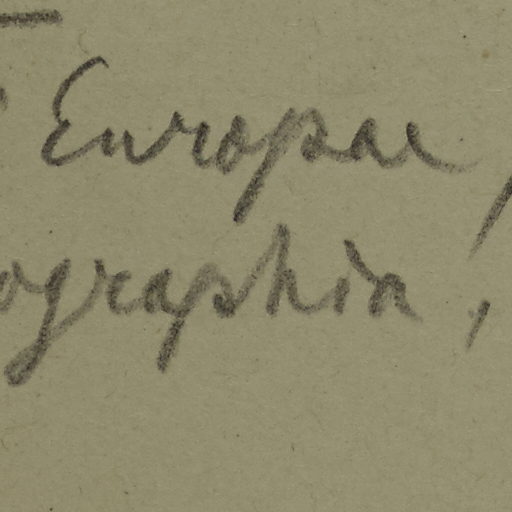 Europae,
ographia,